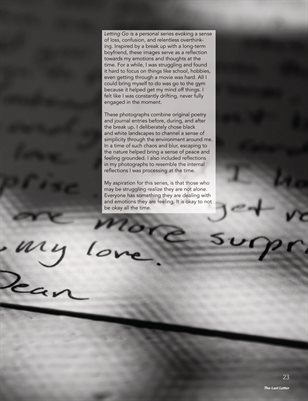 Letting Go is a personal series evoking a sense
of loss, confusion, and relentless overthink-
ing. Inspired by a break up with a long-term
boyfriend, these images serve as a reflection
towards my emotions and thoughts at the
time. For a while, I was struggling and found
it hard to focus on things like school, hobbies,
even getting through a movie was hard. All I
could bring myself to do was go to the gym
because it helped get my mind off things. I
felt like I was constantly drifting, never fully
engaged in the moment.
These photographs combine original poetry
and journal entries before, during, and after
the break up. I deliberately chose black
and white landscapes to channel a sense of
simplicity through the environment around me.
In a time of such chaos and blur, escaping to
the nature helped bring a sense of peace and
feeling grounded. I also included reflections
in my photographs to resemble the internal
reflections I was processing at the time.
My aspiration for this series, is that those who
may be struggling realize they are not alone.
Everyone has something they are dealing with
and emotions they are feeling. It is okay to not
be okay all the time.
are more surpri
my love.
Dean
23
The Last Letter